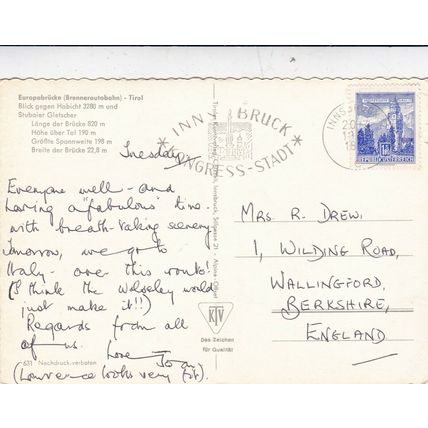 Europabrücke (Brennerautobahn) - Tirol
Blick gegen Habicht 3280 m und
Stubaier Gletscher
Länge der Brücke 820 m
Höhe über Tal 190 m
Größte Spannweite 198 m
Breite der Brücke 22,8 m
INNSBRUCK
KONGRESS-STADT
REPUBLIK ÖSTERREICH
Tuesday
Everyone well - and
having a "fabulous" time.
with breath-taking scenery.
Tomorrow, we go to
Italy - over this route!
(I think the Wolseley would
just make it!!)
Regards from all
of us.
Love
(Lawrence looks very fit).
MRS. R. DREW
1, WILDING ROAD,
WALLINGFORD,
BERKSHIRE,
ENGLAND
KTV
Das Zeichen
für Qualität
631 Nachdruck verboten